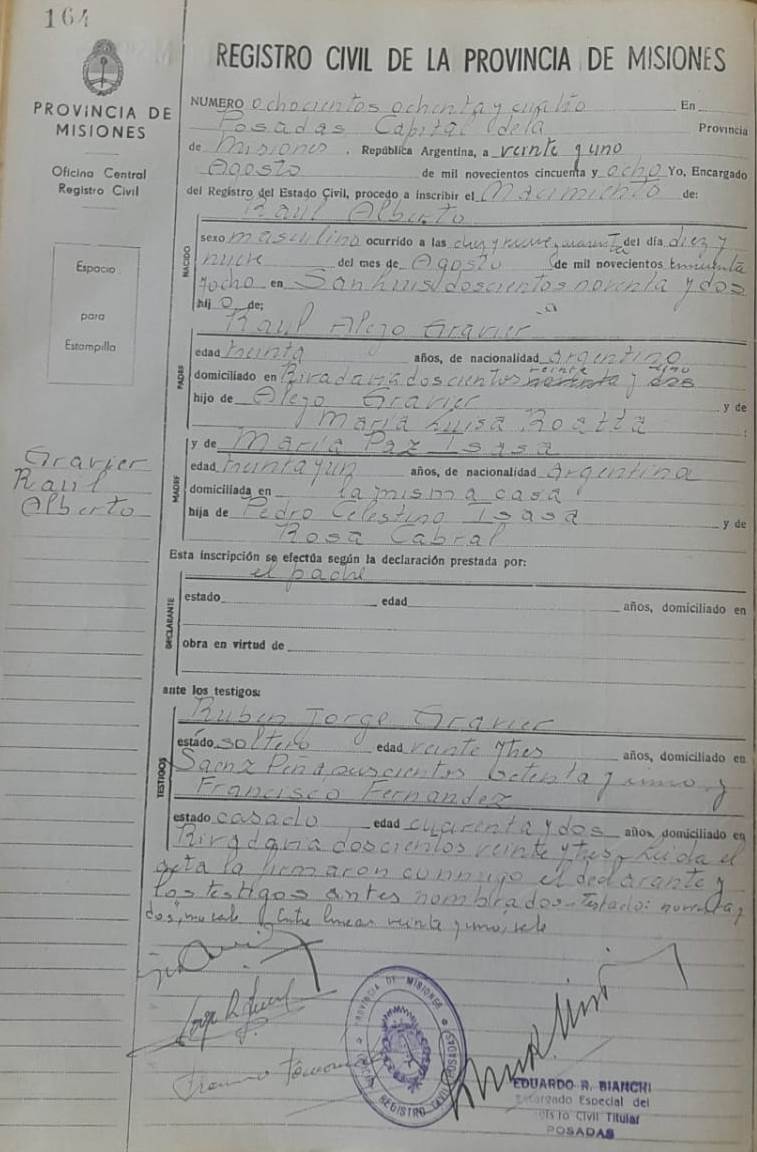 164
PROVINCIA DE
MISIONES
Oficina Central
Registro Civil
Espacio
para
Estampilla
Gravier
Raúl
Alberto
REGISTRO CIVIL DE LA PROVINCIA DE MISIONES
NUMERO ochocientos ochenta y cuatro En
Posadas Capital de la Provincia
de Misiones. República Argentina, a veinte y uno
Agosto de mil novecientos cincuenta y ocho Yo, Encargado
del Registro del Estado Civil, procedo a inscribir el Nacimiento de:
Raúl Alberto
NACIDO
sexo masculino ocurrido a las diez y nueve, cuarenta del día diez y
nueve del mes de Agosto de mil novecientos cincuenta
y ocho en San Luis doscientos noventa y dos
hij o de:
PADRE
Raúl Alejo Gravier
edad treinta años, de nacionalidad argentino
veinte uno
domiciliado en Rivadavia doscientos noventa y dos
hijo de Alejo Gravier y de
María Luisa Roatta
MADRE
y de María Paz Isasa
edad treinta y un años, de nacionalidad Argentina
domiciliada en la misma casa
hija de Pedro Celestino Isasa y de
Rosa Cabral
Esta inscripción se efectúa según la declaración prestada por:
el padre
DECLARANTE
estado edad años, domiciliado en
obra en virtud de
ante los testigos:
TESTIGOS
Ruben Jorge Gravier
estado soltero edad veinte y tres años, domiciliado en
Saenz Peña y uno y
Francisco Fernandez
estado casado edad cuarenta y dos años, domiciliado en
Rivadavia doscientos veinte y tres. Leida el
acta la firmaron conmigo el declarante y
los testigos antes nombrados. Testado: noventa y
dos, no vale. Entre lineas veinte y uno, vale
PROVINCIA DE MISIONES
REGISTRO CIVIL POSADAS
EDUARDO R. BIANCHI
Encargado Especial del
Registro Civil Titular
POSADAS